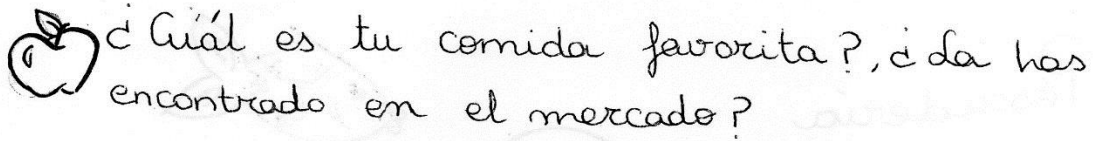 ¿Cuál es tu comida favorita?, ¿La has
encontrado en el mercado?